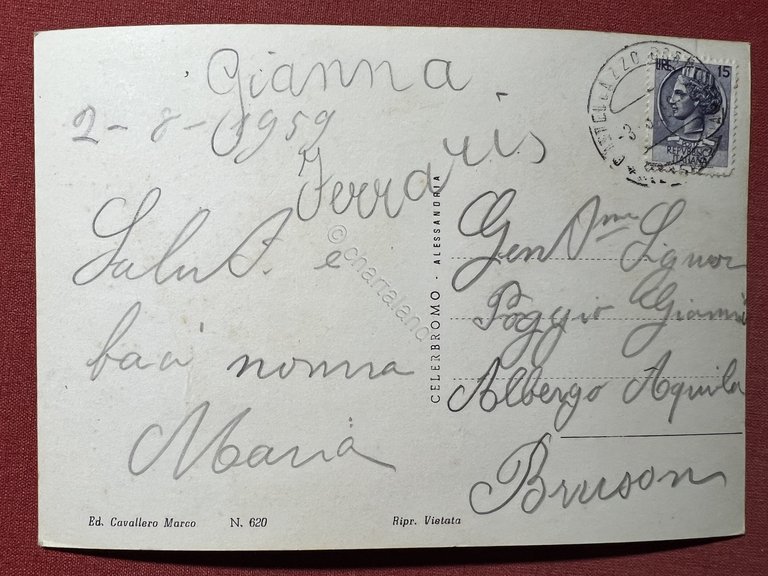 Gianna
2-8-1959
Ferraris
Saluti e
baci nonna
Maria
Gent.me Signor
Poggio Gianni
Albergo Aquila
Bruson
CELERBROMO - ALESSANDRIA
LIRE 15
REPVBBLICA
ITALIANA
CASTELLAZZO
© chartaland
Ed. Cavallero Marco N. 620 Ripr. Vietata